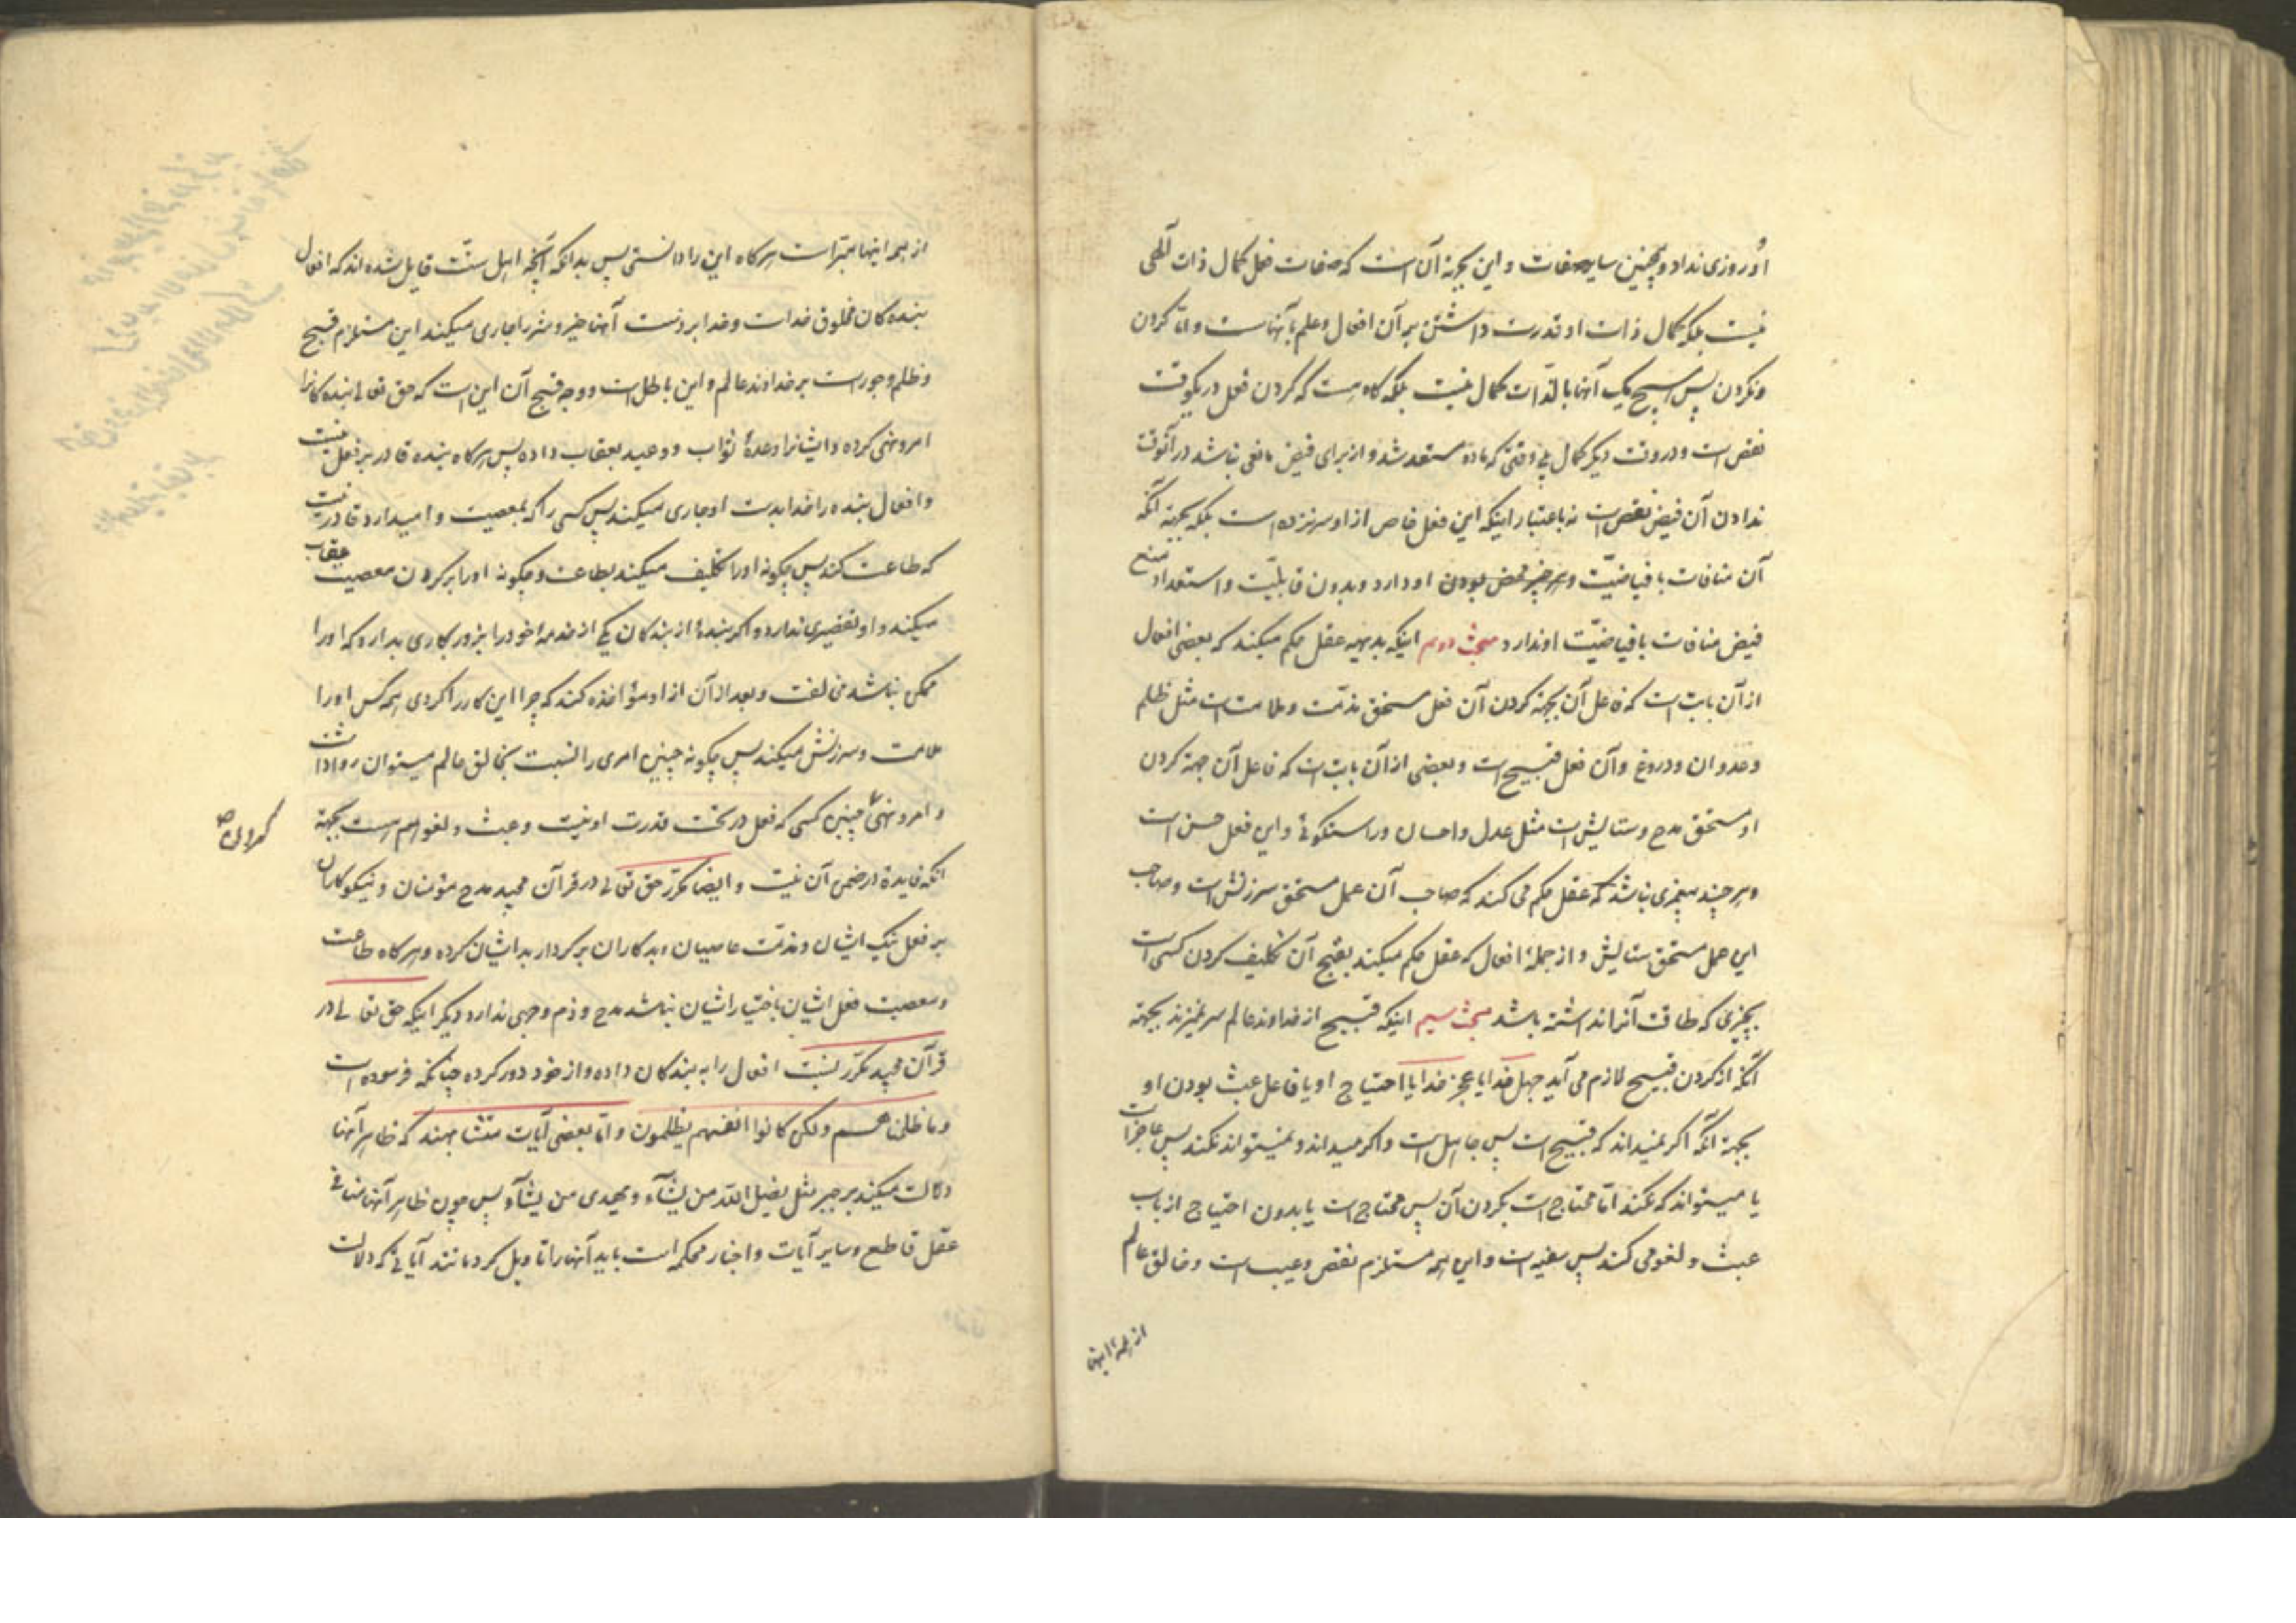 او روزی نداد و همچنین سایر صفات و این بجهة آن است که صفات فعل کمال ذات آلهی
نیست بلکه کمال ذات او قدرت داشتن بر آن افعال و علم بآنهاست و اما کردن
و نکردن پس هیچ یک آنها بالذات کمال نیست بلکه گاه هست که کردن فعل در یکوقت
نقص است و در وقت دیگر کمال یعنی وقتی که ماده مستعد شد و از برای فیض مانعی نباشد در آنوقت
ندادن آن فیض نقص است نه باعتبار اینکه این فعل خاص از او سر نزده است بلکه بجهة آنکه
آن منافات با فیاضیّت و خیر محض بودن او دارد و بدون قابلیّت و استعداد منع
فیض منافات با فیاضیّت او ندارد مبحث دوم اینکه بدیهه عقل حکم میکند که بعضی افعال
از آن بابت است که فاعل آن بجهة کردن آن فعل مستحق مذمّت و ملامت است مثل ظلم
و عدوان و دروغ و آن فعل قبیح است و بعضی از آن بابت است که فاعل آن جهة کردن
او مستحق مدح و ستایش است مثل عدل و احسان و راستگوئی و این فعل حسن است
و هر چند پیغمبری نباشد که عقل حکم می کند که صاحب آن عمل مستحق سرزنش است و صاحب
این عمل مستحق ستایش و از جملهٔ افعال که عقل حکم میکند بقبح آن تکلیف کردن کسی است
بچیزی که طاقت آنرا نداشته باشد مبحث سیم اینکه قبیح از خداوند عالم سر نمیزند بجهة
آنکه از کردن قبیح لازم می آید جهل خدا یا عجز خدا یا احتیاج او یا فاعل عبث بودن او
بجهة آنکه اگر نمیداند که قبیح است پس جاهل است و اگر میداند و نمیتواند نکند پس عاجز است
یا میتواند که نکند اما محتاج است بکردن آن پس محتاج است یا بدون احتیاج از باب
عبث و لغو می کند پس سفیه است و این همه مستلزم نقص و عیب است و خالق عالم
از همهٔ اینها
از همه اینها مبرّاست هرگاه این را دانستی پس بدانکه آنچه اهل سنّت قایل شده اند که افعال
بنده کان مخلوق خداست و خدا بر دست آنها خیر و شر را جاری میکند این مستلزم قبیح
و ظلم و جور است بر خداوند عالم و این باطل است و وجه قبح آن این است که حق تعالی بنده کانرا
امر و نهی کرده و ایشانرا وعدهٔ ثواب و وعید بعقاب داده پس هرگاه بنده قادر بر فعل نیست
و افعال بنده را خدا بدست او جاری میکند پس کسی را که بمعصیت وامیدارد قادر نیست
که طاعت کند پس چگونه او را تکلیف میکند بطاعت و چگونه او را بر کردن معصیت عقاب
میکند و او تقصیری ندارد و اگر بندهٔ از بندکان یکی از خدمهٔ خود را بزور بکاری بدارد که او را
ممکن نباشد مخالفت و بعد از آن از او مؤاخذه کند که چرا این کار را کردی همه کس او را
ملامت و سرزنش میکند پس چگونه چنین امری را نسبت بخالق عالم میتوان روا داشت
و امر و نهی چنین کسی که فعل در تحت قدرت او نیست و عبث و لغو هم هست بجهة
آنکه فایدهٔ در ضمن آن نیست و ایضا مکرّر حق تعالی در قرآن مجید مدح مؤمنان و نیکوکاران
بر فعل نیک ایشان و مذمّت عاصیان و بدکاران بر کردار بد ایشان کرده و هرگاه طاعت
و معصیت فعل ایشان باختیار ایشان نباشد مدح و ذم وجهی ندارد دیگر اینکه حق تعالی در
قرآن مجید مکرّر نسبت افعال را به بندکان داده و از خود دور کرده چنانکه فرموده است
و ما ظلمناهم و لکن کانوا انفسهم یظلمون و اما بعضی آیات متشابهند که ظاهر آنها
دلالت میکند بر جبر مثل یضل الله من یشآء و یهدی من یشآء پس چون ظاهر آنها منافی
عقل قاطع و سایر آیات و اخبار محکمه است باید آنها را تاویل کرد مانند آیاتی که دلالت